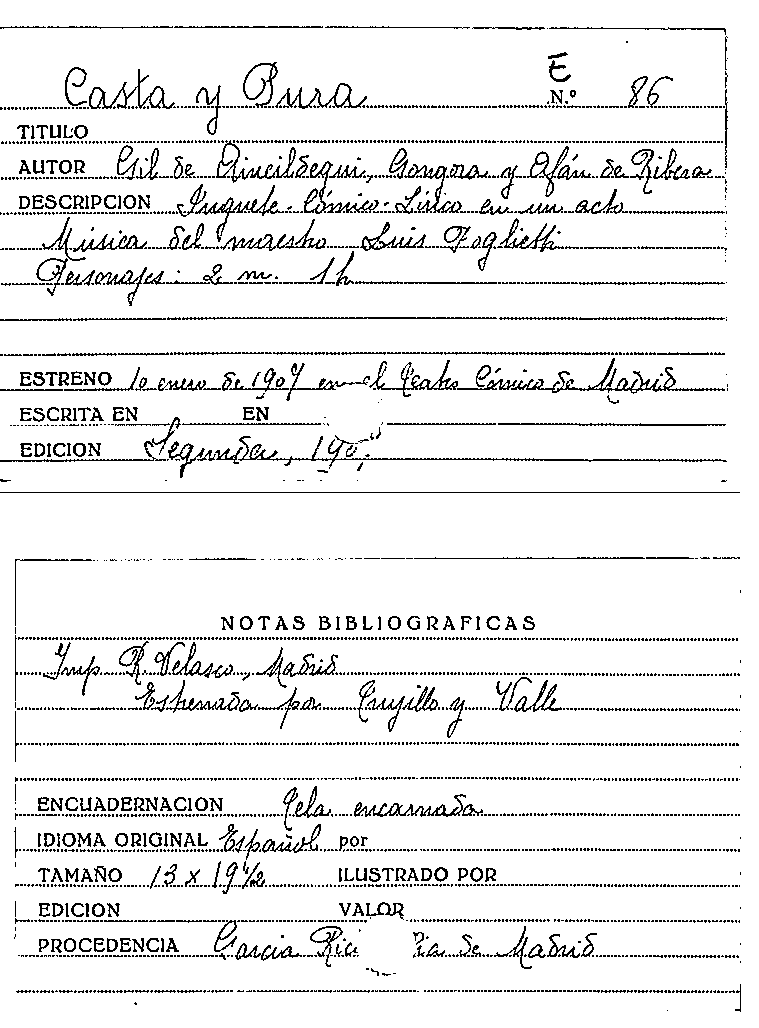 Casta y Pura E
N.º 86
TITULO
AUTOR Gil de Aincildegui, Gongora y Afán de Ribera
DESCRIPCION Juguete-Cómico-Lírico en un acto
Música del maestro Luis Foglietti
Personajes: 2 m. 1 h
ESTRENO 10 enero de 1907 en el Teatro Cómico de Madrid
ESCRITA EN EN
EDICION Segunda,
NOTAS BIBLIOGRAFICAS
Imp. R. Velasco, Madrid
Estrenada por Trujillo y Valle
ENCUADERNACION Tela encarnada
IDIOMA ORIGINAL Español por
TAMAÑO 13 x 19 1/2 ILUSTRADO POR
EDICION VALOR
PROCEDENCIA Garcia de Madrid